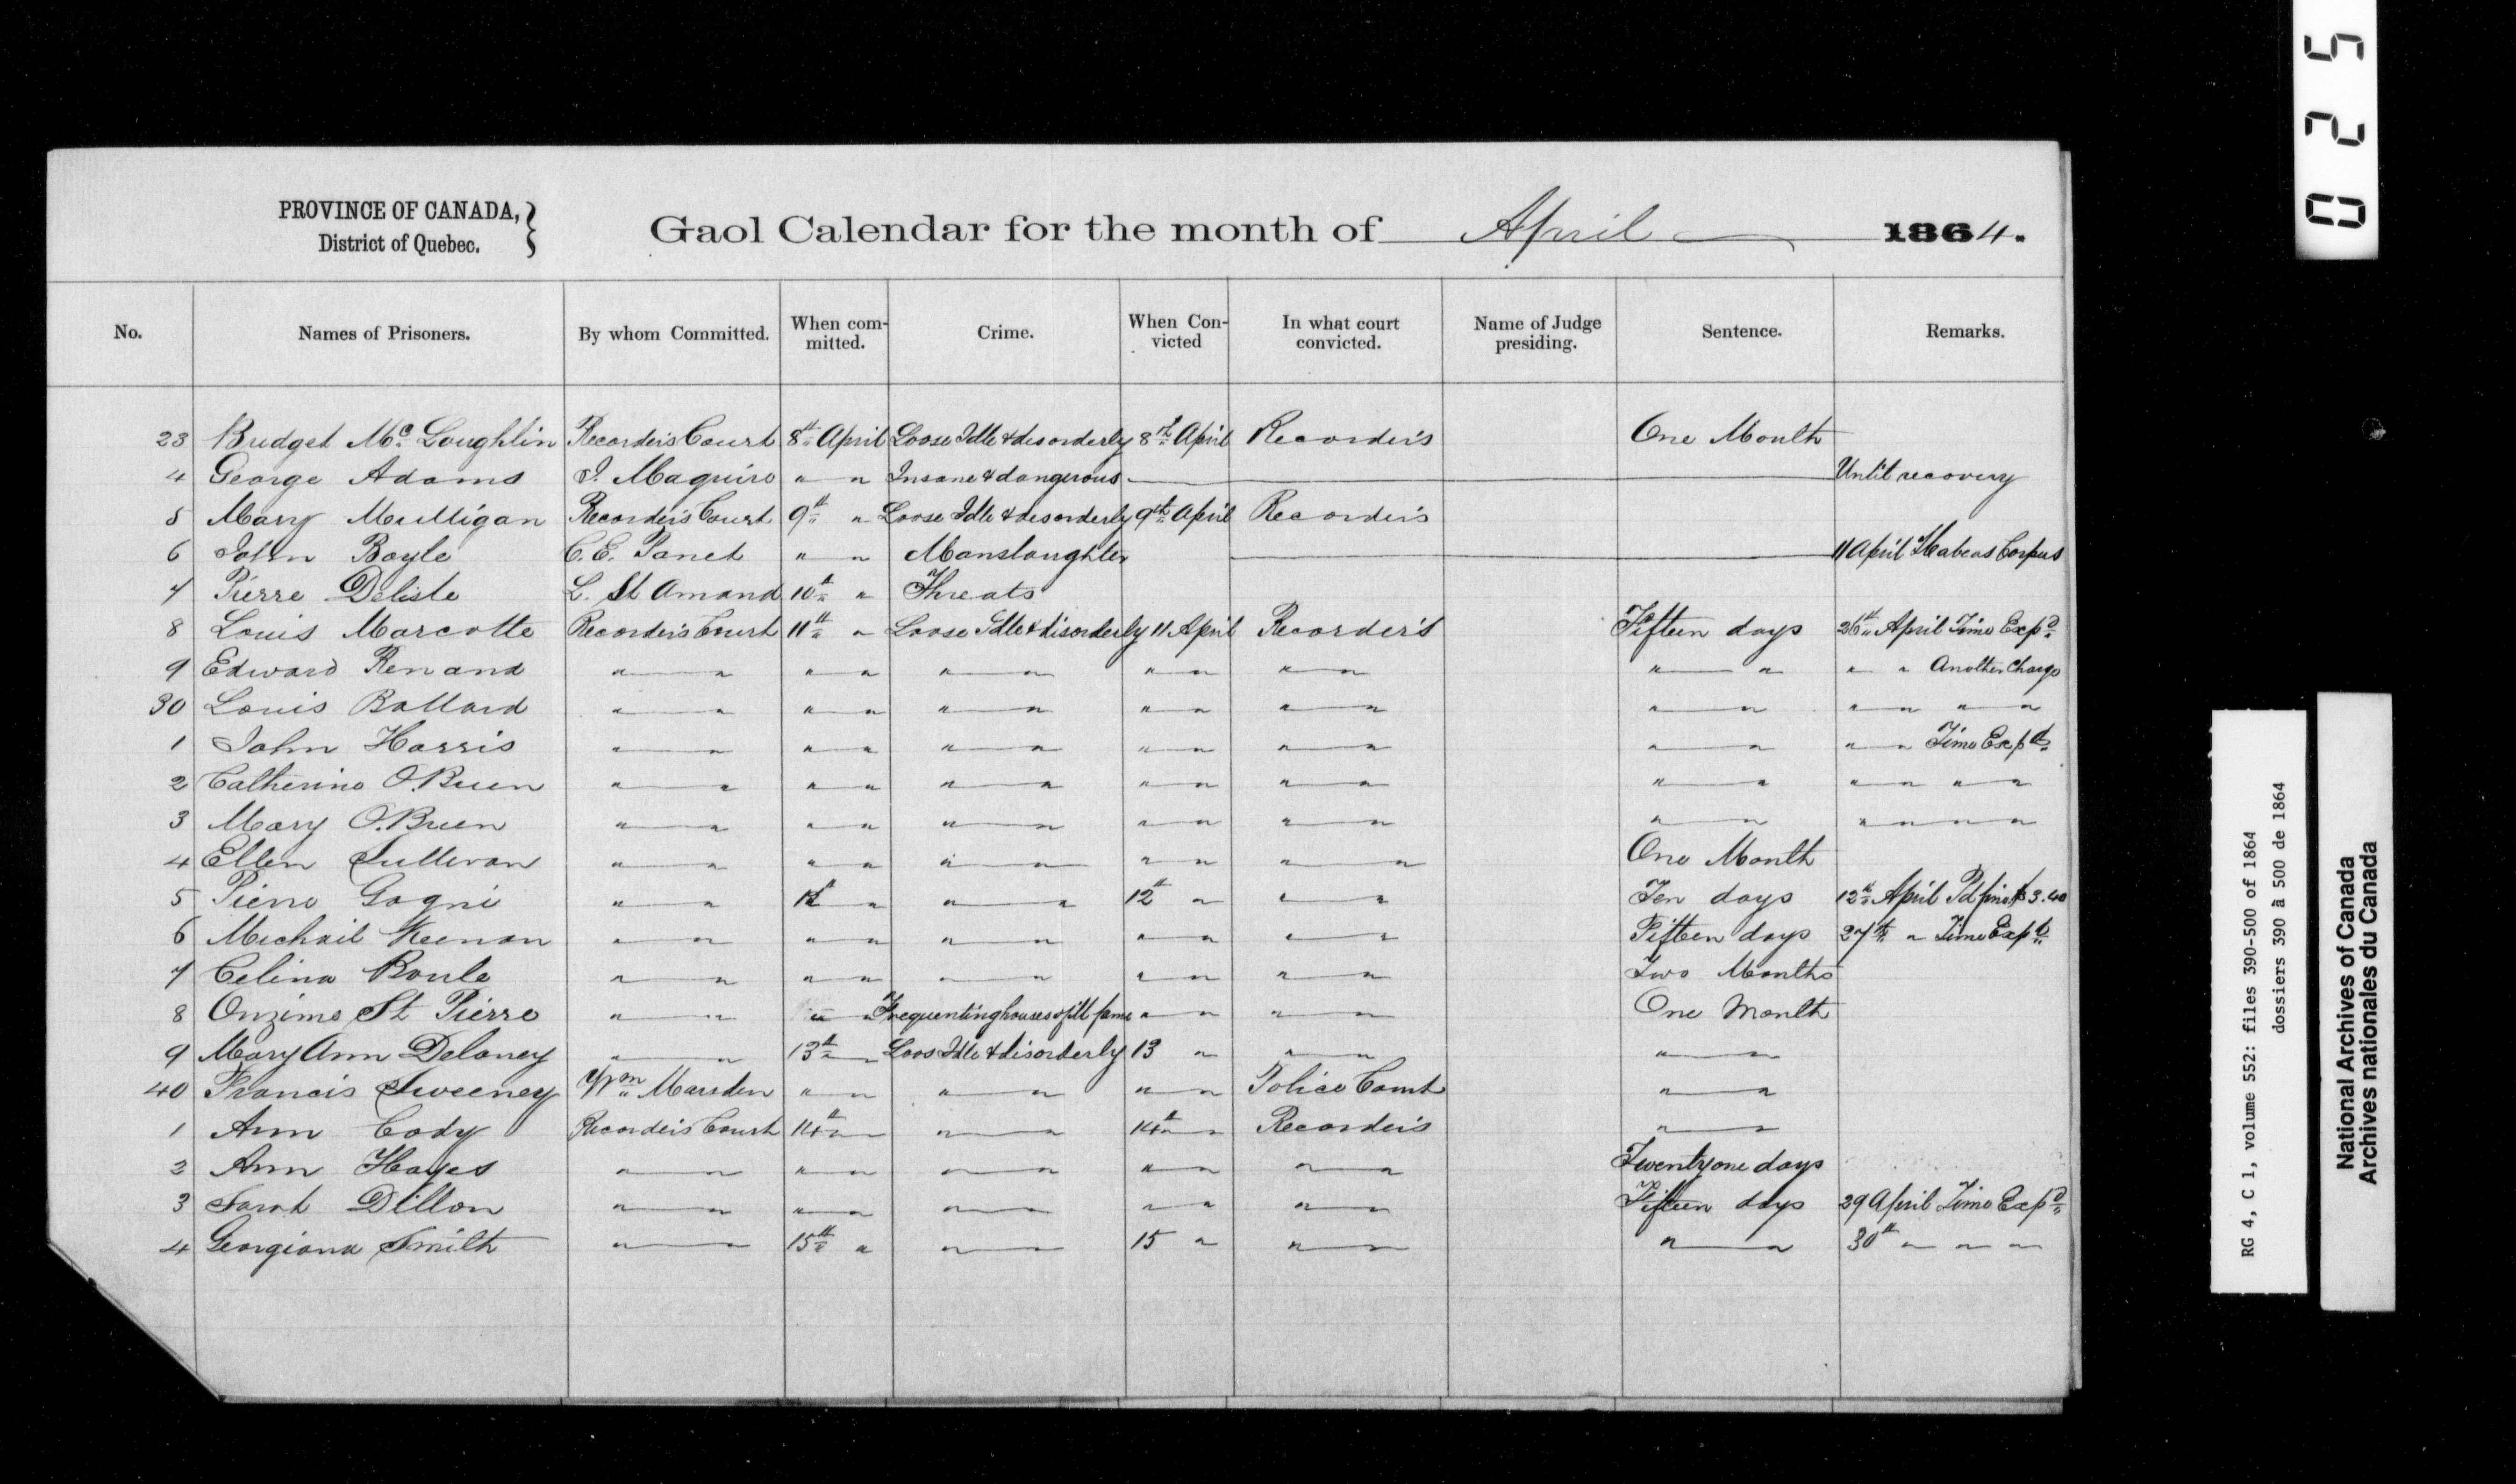 PROVINCE OF CANADA,
District of Quebec.
Gaol Calendar for the month of April 1864.
No. Names of Prisoners. By whom Committed. When committed. Crime. When Convicted In what court convicted. Name of Judge presiding. Sentence. Remarks.
23 Bridget Mc Loughlin Recorder's Court 8th April Loose Idle & disorderly 8th April Recorder's One Month
4 George Adams J. Maguire " " Insane & dangerous Until recovery
5 Mary Mulligan Recorder's Court 9th " Loose Idle & disorderly 9th April Recorder's
6 John Boyle C. E. Panet " " Manslaughter 11 April Habeas Corpus
7 Pierre Delisle L. St Amand 10th " Threats
8 Louis Marcotte Recorder's Court 11th " Loose Idle & disorderly 11 April Recorder's Fifteen days 26th April Time Expd
9 Edward Renand " " " " " " " " " " " " " " Another Charge
30 Louis Ballard " " " " " " " " " " " " " " " "
1 John Harris " " " " " " " " " " " " " " Time Expd
2 Catherine O.Brien " " " " " " " " " " " " " " " "
3 Mary O.Brien " " " " " " " " " " " " " " " "
4 Ellen Sullivan " " " " " " " " " " One Month
5 Pierre Gagné " " 12th " " " 12th " " " Ten days 12th April Pd fine $3.40
6 Michail Keenan " " " " " " " " " " Fifteen days 27th " Time Expd
7 Celina Boule " " " " " " " " " " Two Months
8 Onzime St Pierre " " " " Frequenting houses of ill fame " " " " One Month
9 Mary Ann Delaney " " 13th " Loos Idle & disorderly 13 " " " " "
40 Francis Sweeney Wm Marsden " " " " " " Police Court " "
1 Ann Cody Recorder's Court 14th " " " 14th " Recorder's " "
2 Ann Hayes " " " " " " " " " " Twenty one days
3 Sarah Dillon " " " " " " " " " " Fifteen days 29 April Time Expd
4 Georgiana Smith " " 15th " " " 15 " " " " " 30th " " "
025
RG 4, C 1, volume 552: files 390-500 of 1864
dossiers 390 à 500 de 1864
National Archives of Canada
Archives nationales du Canada